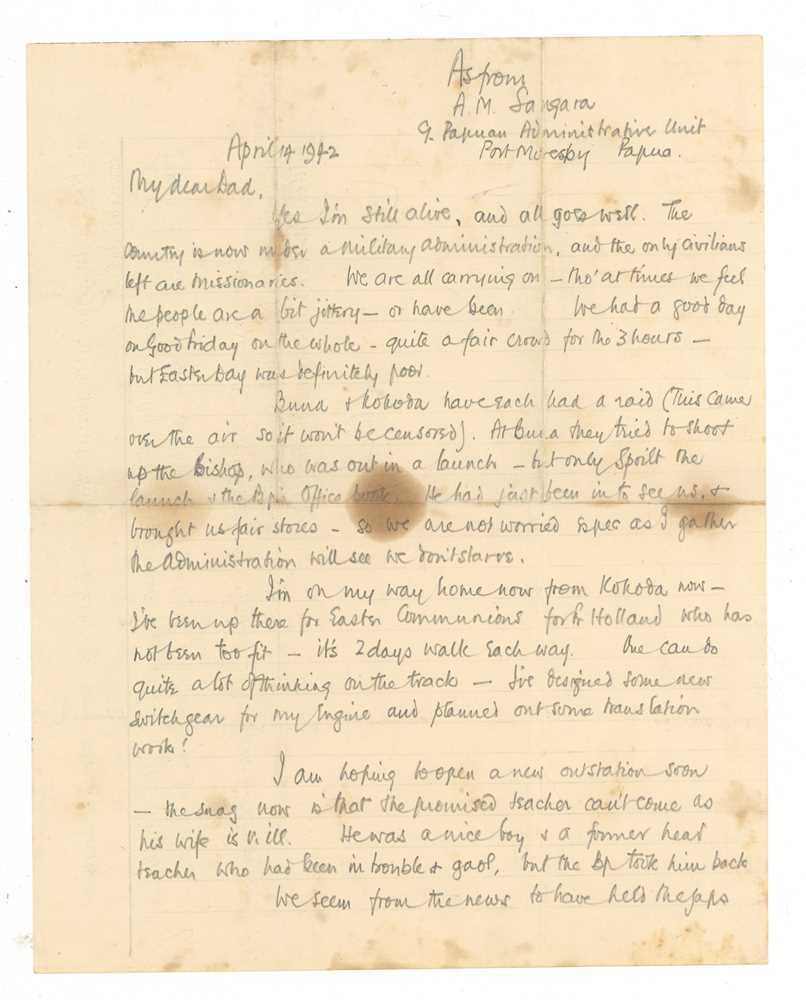 As from
A.M. Sangara
c/o Papuan Administrative Unit
Port Moresby Papua.
April 14 1942
My dear Dad,
Yes I'm still alive, and all goes well. The
country is now under a military administration, and the only civilians
left are missionaries. We are all carrying on - tho' at times we feel
the people are a bit jittery - or have been We had a good day
on Good Friday on the whole - quite a fair crowd for the 3 hours -
but Easter Day was definitely poor.
Buna & Kokoda have each had a raid (This came
over the air so it won't be censored). At Buna they tried to shoot
up the Bishop, who was out in a launch - but only spoilt the
launch & the Bp's Office book. He had just been in to see us, &
brought us fair stores - so we are not worried espec as I gather
the Administration will see we don't starve.
I'm on my way home now from Kokoda now -
I've been up there for Easter Communions for Fr Holland who has
not been too fit - it's 2 days walk each way. One can do
quite a lot of thinking on the track - I've designed some new
switchgear for my Engine and planned out some translation
work!
I am hoping to open a new outstation soon
- the snag now is that the promised teacher can't come as
his wife is v. ill. He was a nice boy & a former head
teacher who had been in trouble & gaol, but the Bp took him back
We seem from the news to have held the Japs